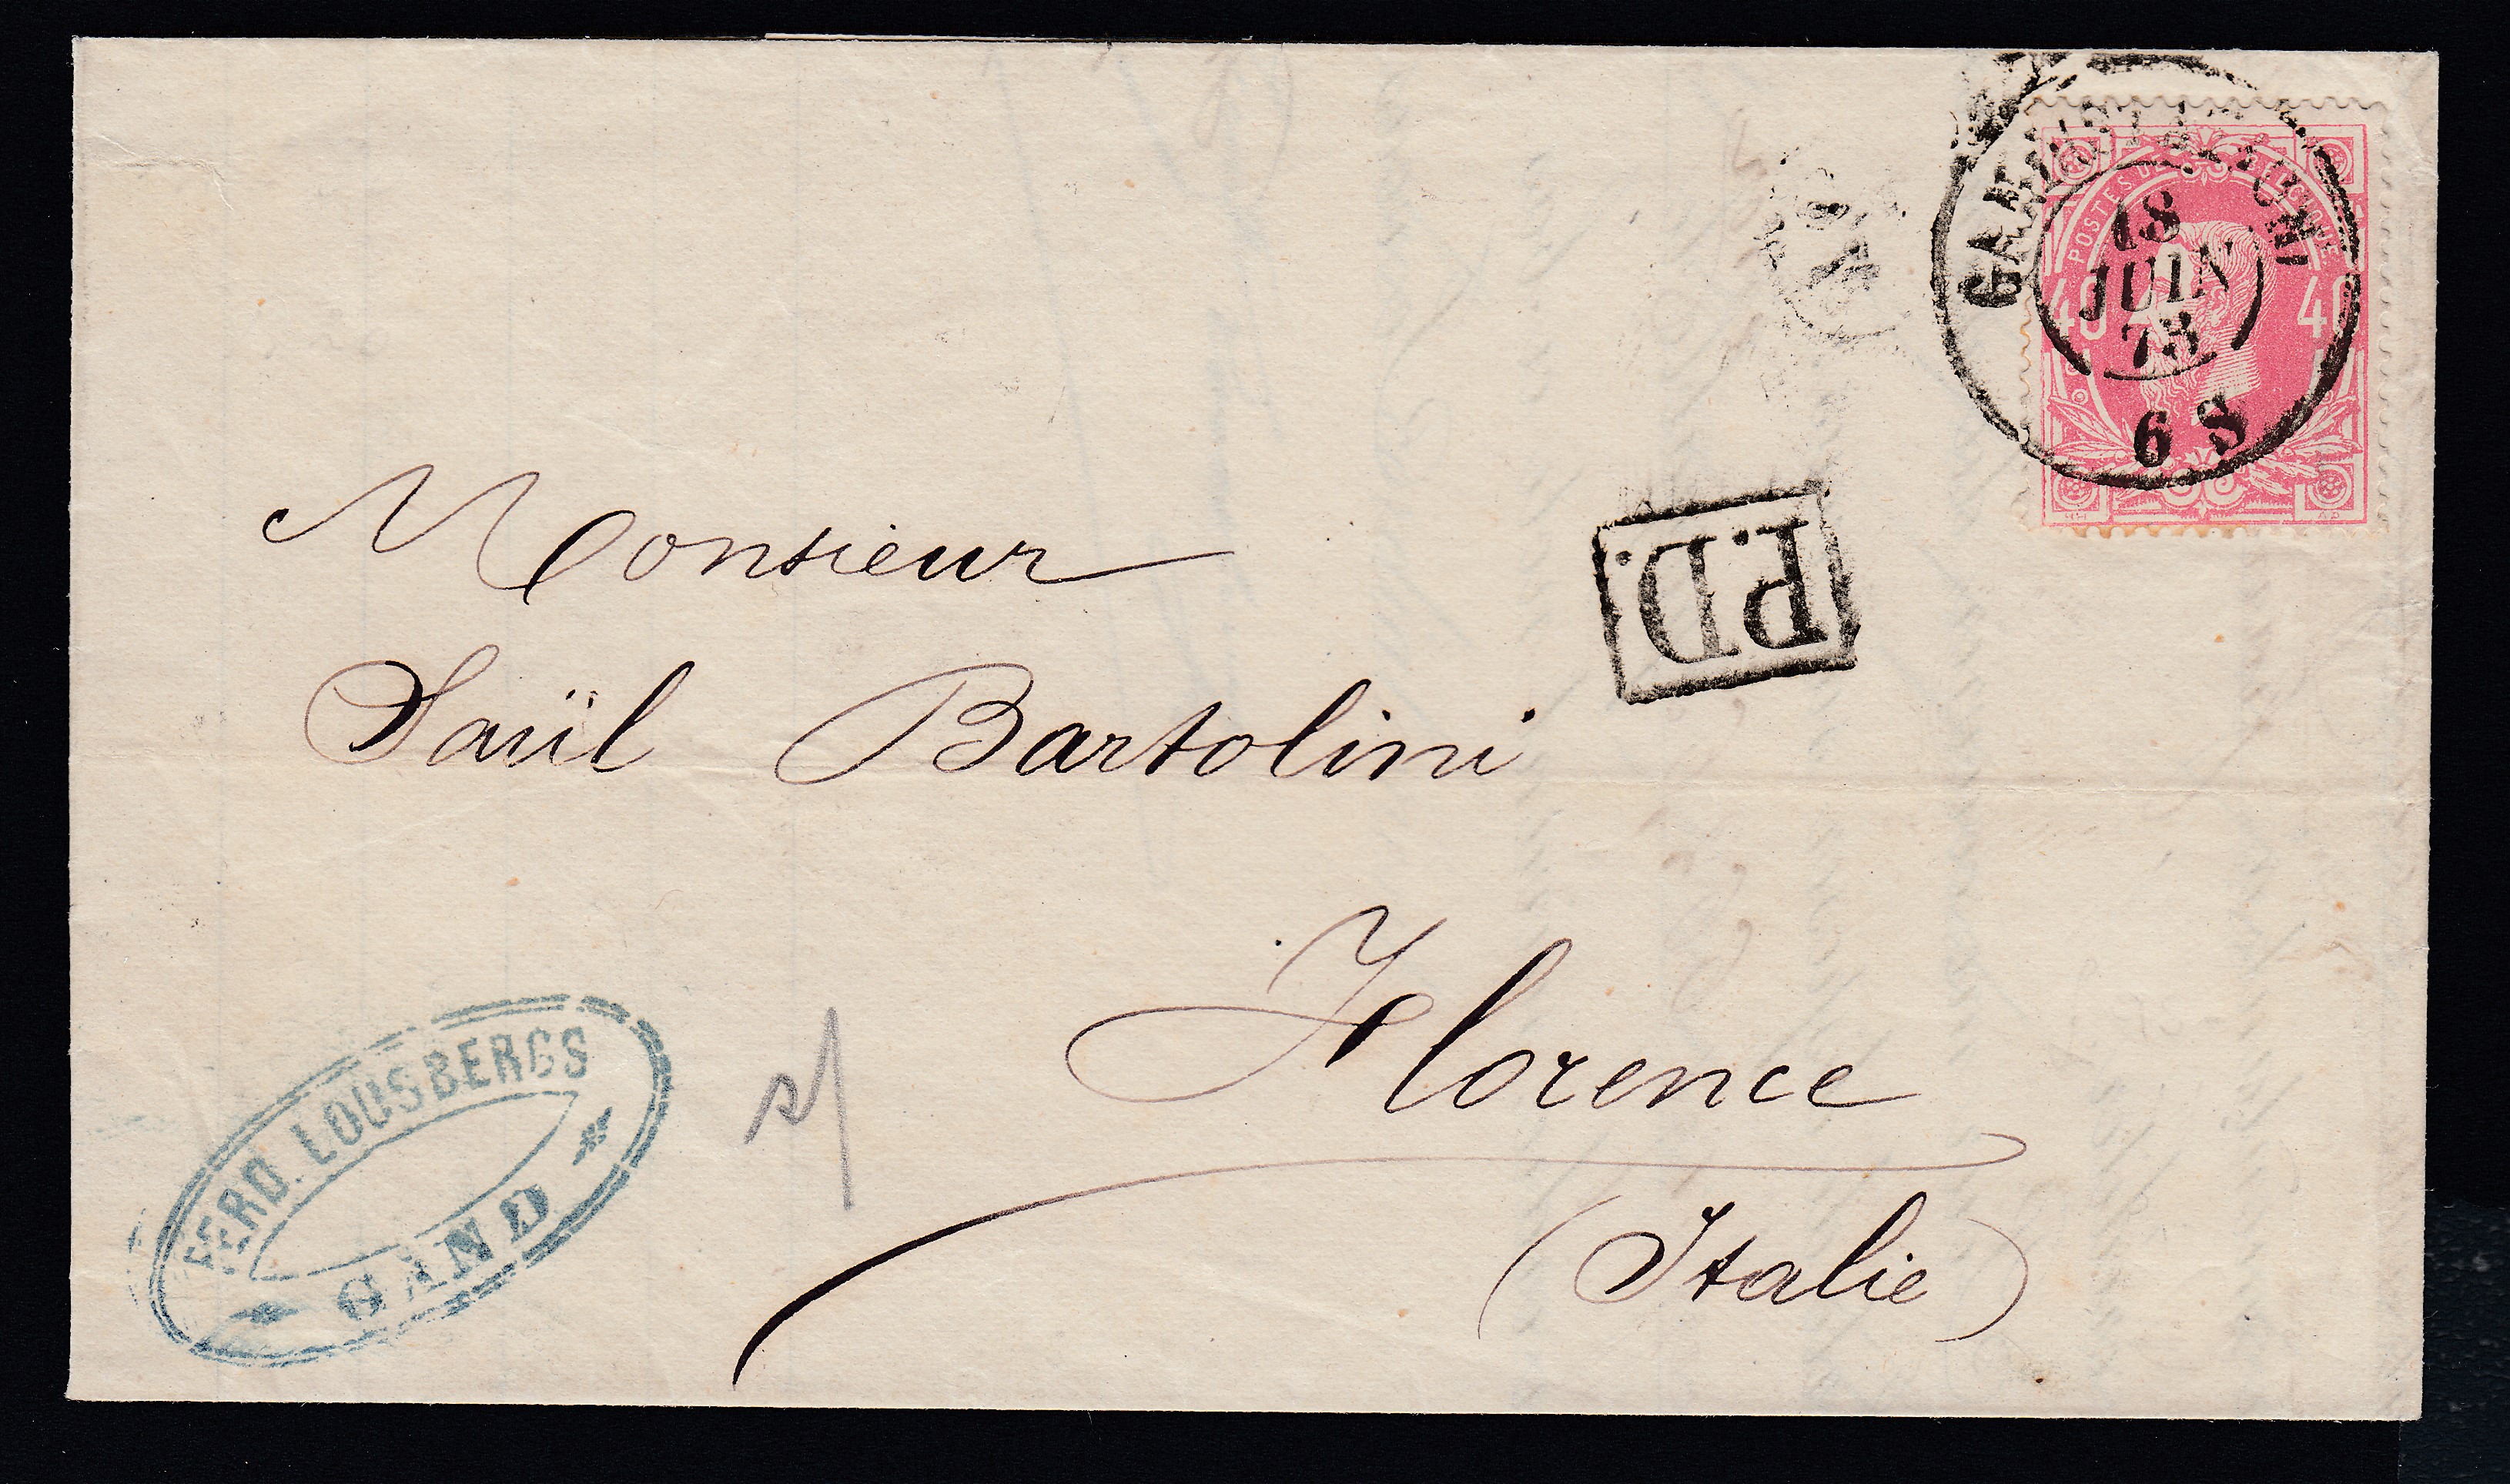 POSTES DE BELGIQUE
40 40
GAND (STATION)
18
JUIN
73
6 S
P.D.
Monsieur
Saül Bartolini
Florence
(Italie)
FERD. LOUSBERGS
GAND